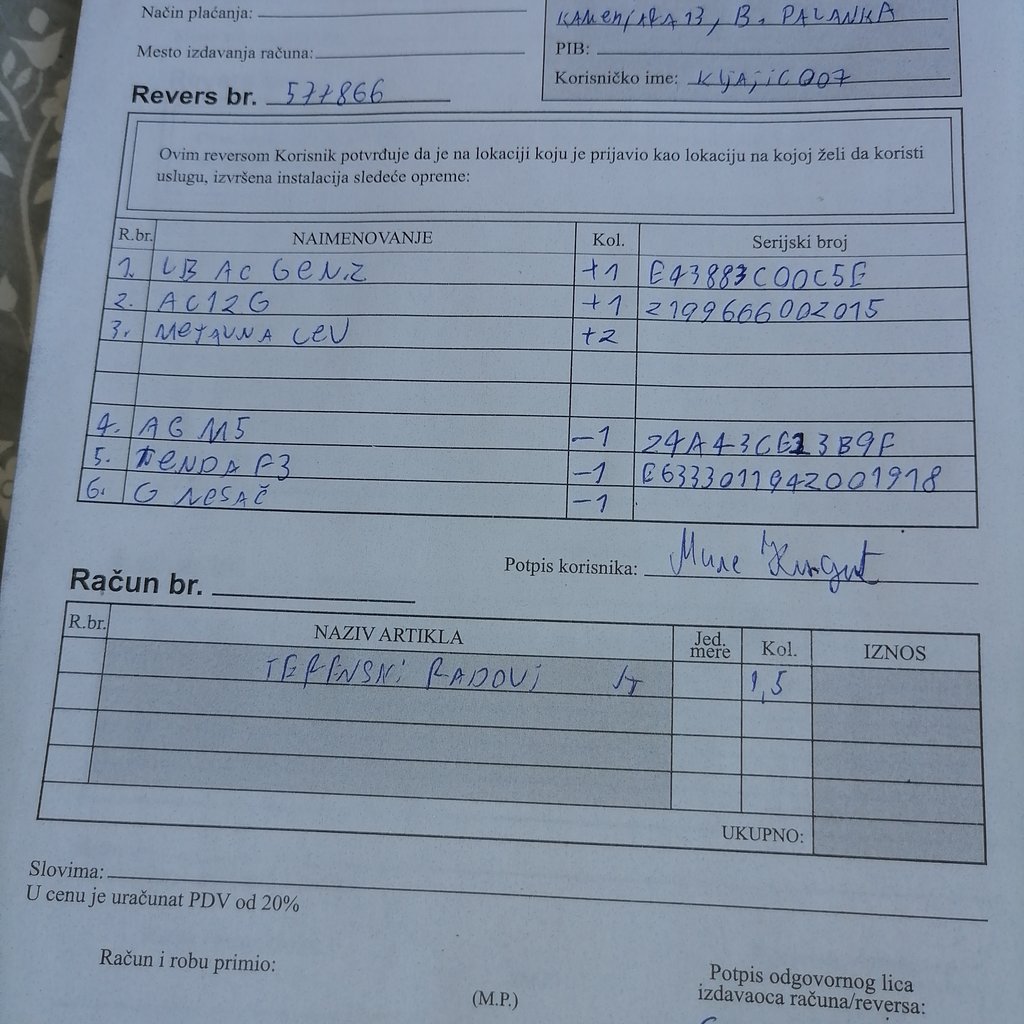 Način plaćanja:
KAMENJARA 13, B. PALANKA
Mesto izdavanja računa:
PIB:
Korisničko ime: KljAjiC007
Revers br. 577866
Ovim reversom Korisnik potvrđuje da je na lokaciji koju je prijavio kao lokaciju na kojoj želi da koristi
uslugu, izvršena instalacija sledeće opreme:
R.br. NAIMENOVANJE Kol. Serijski broj
1. LB AC GEN.2 +1 E43883C00C5E
2. AC12G +1 2199666002015
3. METALNA CEV +2
4. AG M5 -1 24A43CE23B9F
5. TENDA F3 -1 E6333011942001918
6. G NOSAČ -1
Potpis korisnika:
Račun br.
R.br. NAZIV ARTIKLA Jed. mere Kol. IZNOS
TERENSKI RADOVI 1,5
UKUPNO:
Slovima:
U cenu je uračunat PDV od 20%
Račun i robu primio:
(M.P.)
Potpis odgovornog lica
izdavaoca računa/reversa: